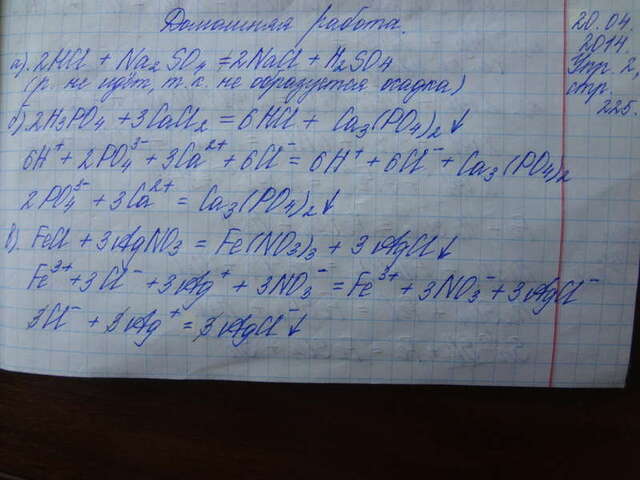 Домашняя работа.
20.04.
2014.
Упр. 2
стр.
225.
а). 2HCl + Na₂SO₄ ≠ 2NaCl + H₂SO₄
(р. не идёт, т.к. не образуется осадка)
б) 2H₃PO₄ + 3CaCl₂ = 6HCl + Ca₃(PO₄)₂↓
6H⁺ + 2PO₄³⁻ + 3Ca²⁺ + 6Cl⁻ = 6H⁺ + 6Cl⁻ + Ca₃(PO₄)₂
2PO₄³⁻ + 3Ca²⁺ = Ca₃(PO₄)₂↓
в). FeCl + 3AgNO₃ = Fe(NO₃)₃ + 3AgCl↓
Fe³⁺ + 3Cl⁻ + 3Ag⁺ + 3NO₃⁻ = Fe³⁺ + 3NO₃⁻ + 3AgCl⁻
3Cl⁻ + 3Ag⁺ = 3AgCl⁻↓